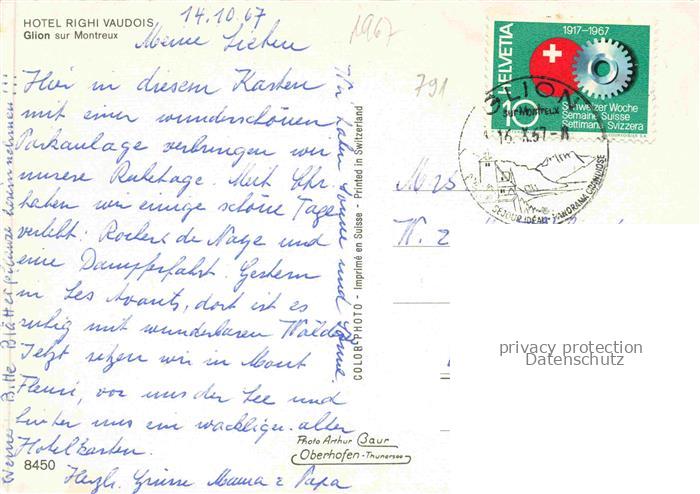 HOTEL RIGHI VAUDOIS
Glion sur Montreux
14.10.67
1967
791
Meine Lieben
Hier in diesem Kasten
mit einer wunderschönen
Parkanlage verbringen wir
unsere Ruhetage. Mit Chr.
haben wir einige schöne Tage
verlebt. Rochers de Naye und
eine Dampferfahrt. Gestern
in Les Avants, dort ist es
ruhig mit wunderbaren Wälder
Jetzt sitzen wir in Mont
Fleuri, vor uns der See und
hinter uns ein wackliger alter
Hotelkasten.
Herzl. Grüsse Mama & Papa
Wir haben Sonne und Sonne.
Werner Bitte Blätterpflanze hereinnehmen!!!
8450
COLOR-PHOTO - Imprimé en Suisse - Printed in Switzerland
Photo Arthur Baur
Oberhofen - Thunersee
HELVETIA
1917-1967
10
Schweizer Woche
Semaine Suisse
Settimana Svizzera
GLION
sur Montreux
16.X.67
SEJOUR IDEAL PANORAMA GRANDIOSE
W. 2
privacy protection
Datenschutz